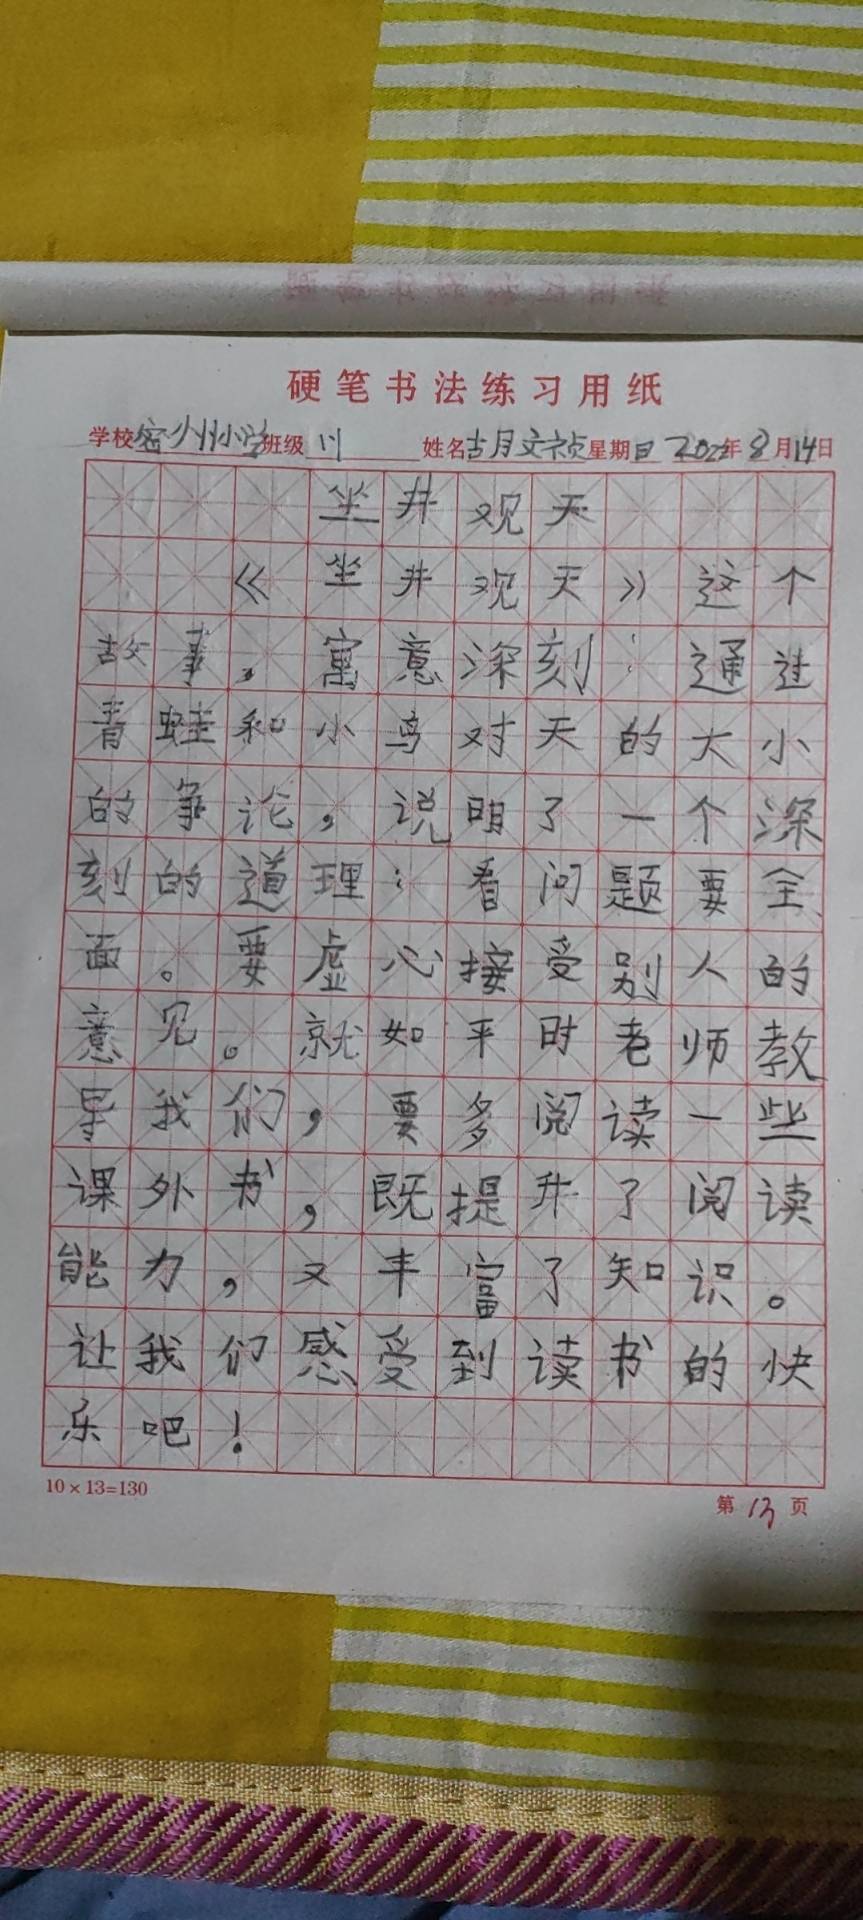 硬笔书法练习用纸
学校密州小学班级1川 姓名胡文祯星期日2022年8月14日
坐井观天
《坐井观天》这个
故事，寓意深刻：通过
青蛙和小鸟对天的大小
的争论，说明了一个深
刻的道理：看问题要全
面。要虚心接受别人的
意见。就如平时老师教
导我们，要多阅读一些
课外书，既提升了阅读
能力，又丰富了知识。
让我们感受到读书的快
乐吧！
10×13=130
第13页